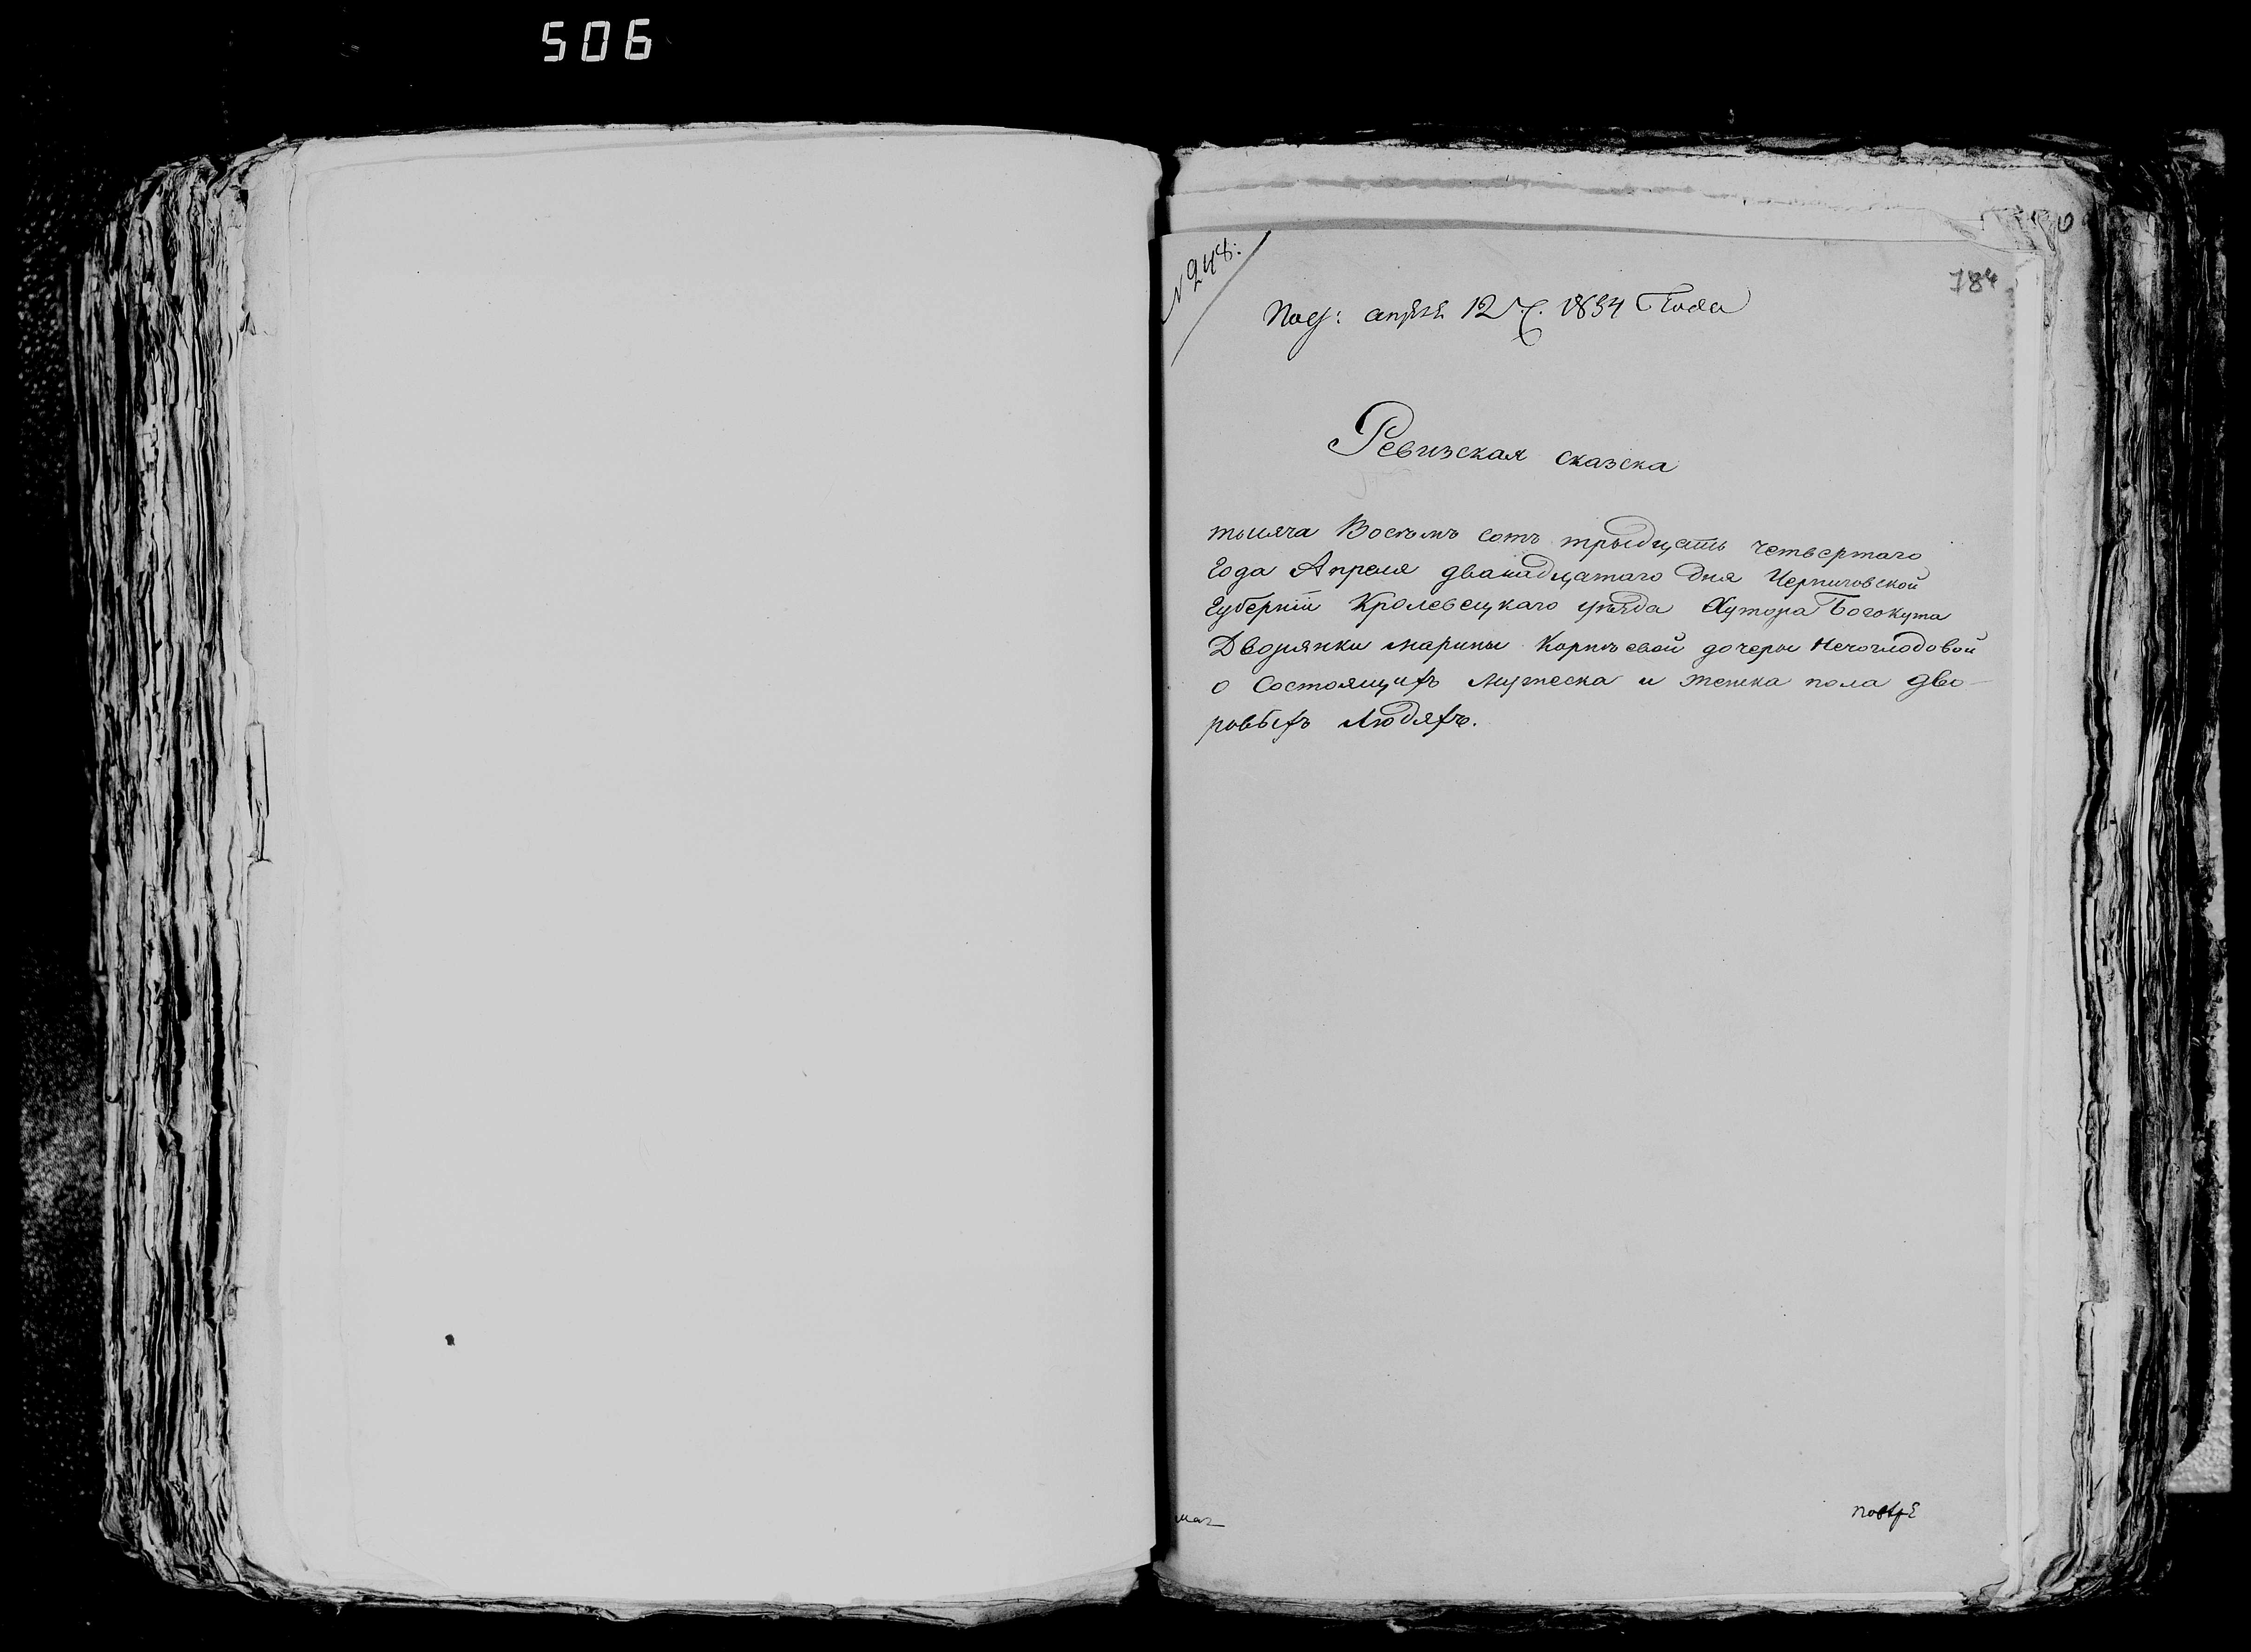 506
N 248:
184
Под: апреля 12 ч. 1834 Года
Ревизская сказска
тысяча Восемъ сотъ трыдцать четвертаго
Года Апреля дванадцатаго Дня Черниговской
Губерніи Кролевецкаго уезда Хутора Богокута
Дворянки марины Корнѣевой дочеры
о Состоящихъ мужеска и женска пола дво-
ровыхъ Людяхъ.